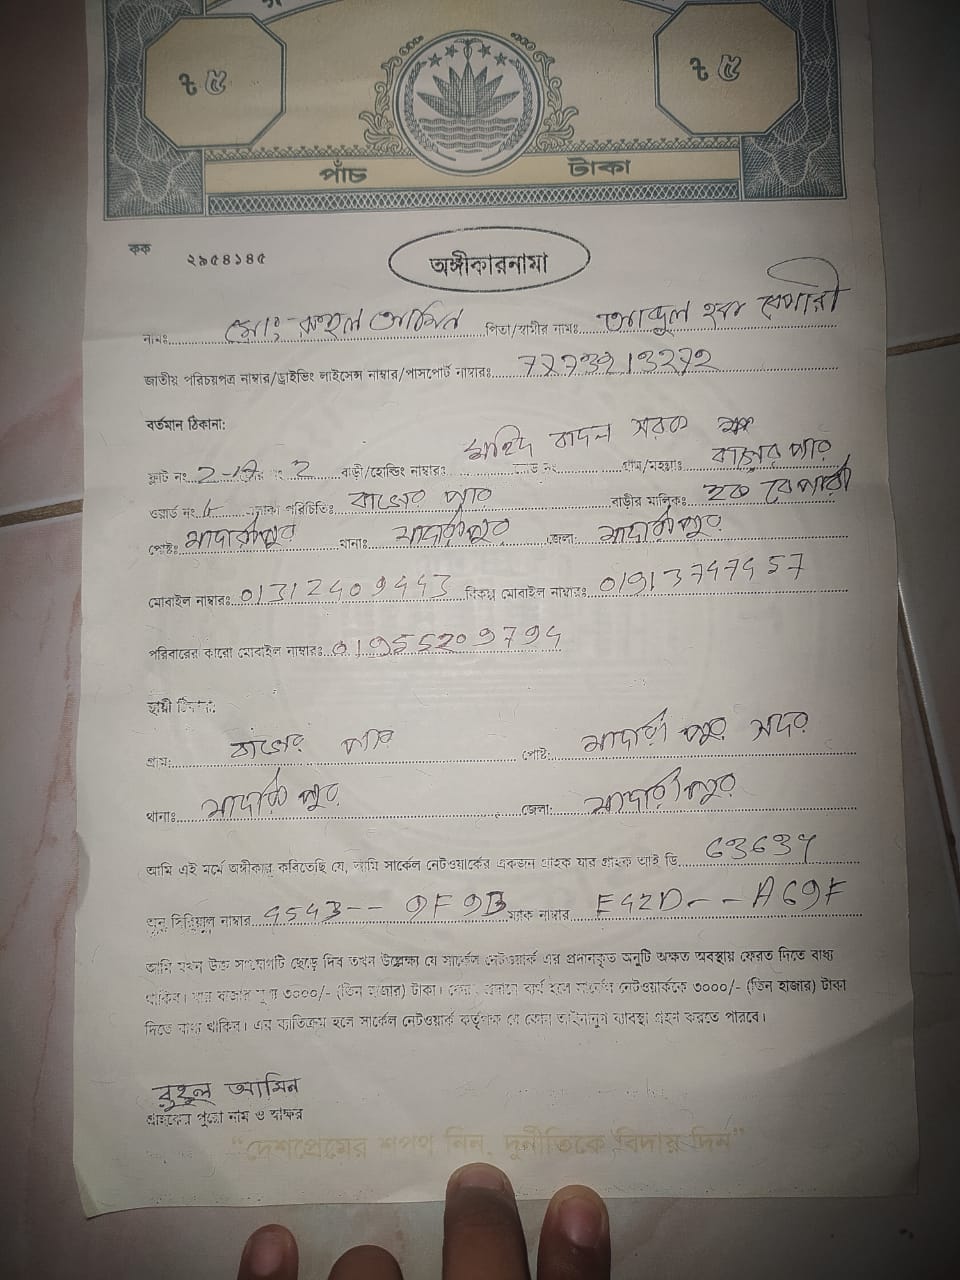 ৳ ৫ ৳ ৫
পাঁচ টাকা
কক ২৯৫৪১৪৫
অঙ্গীকারনামা
নামঃ মোঃ রুহুল আমিন পিতা/স্বামীর নামঃ আব্দুল হক বেপারী
জাতীয় পরিচয়পত্র নাম্বার/ড্রাইভিং লাইসেন্স নাম্বার/পাসপোর্ট নাম্বারঃ
বর্তমান ঠিকানা:
শহিদ বাদল সরক
ফ্লাট নং 2 বাড়ী/হোল্ডিং নাম্বারঃ গ্রাম/মহল্লাঃ পার
ওয়ার্ড নং পরিচিতিঃ পার বাড়ীর মালিকঃ হক বেপারী
পোষ্টঃ মাদারীপুর থানাঃ মাদারীপুর জেলাঃ মাদারীপুর
মোবাইল নাম্বারঃ 01312409443 বিকল্প মোবাইল নাম্বারঃ 01913747457
পরিবারের কারো মোবাইল নাম্বারঃ 01955209794
স্থায়ী
গ্রাম: পার পোষ্ট: মাদারীপুর সদর
থানাঃ মাদারীপুর জেলা: মাদারীপুর
আমি এই মর্মে অঙ্গীকার করিতেছি যে, আমি সার্কেল নেটওয়ার্কের একজন গ্রাহক যার গ্রাহক আই ডি 63634
অনু সিরিয়াল নাম্বার 4543-- 9F9B ম্যাক নাম্বার E42D--A69F
আমি যখন উক্ত সংযোগটি ছেড়ে দিব তখন উল্লেক্ষ্য যে সার্কেল নেটওয়ার্ক এর প্রদানকৃত অনুটি অক্ষত অবস্থায় ফেরত দিতে বাধ্য
থাকিব। যার বাজার মূল্য ৩০০০/- (তিন হাজার) টাকা। ফেরত প্রদানে ব্যর্থ হলে সার্কেল নেটওয়ার্ককে ৩০০০/- (তিন হাজার) টাকা
দিতে বাধ্য থাকিব। এর ব্যতিক্রম হলে সার্কেল নেটওয়ার্ক কর্তৃপক্ষ যে কোন আইনানুগ ব্যবস্থা গ্রহন করতে পারবে।
রুহুল আমিন
গ্রাহকের পুরো নাম ও স্বাক্ষর
“দেশপ্রেমের শপথ নিন, দুর্নীতিকে বিদায় দিন”